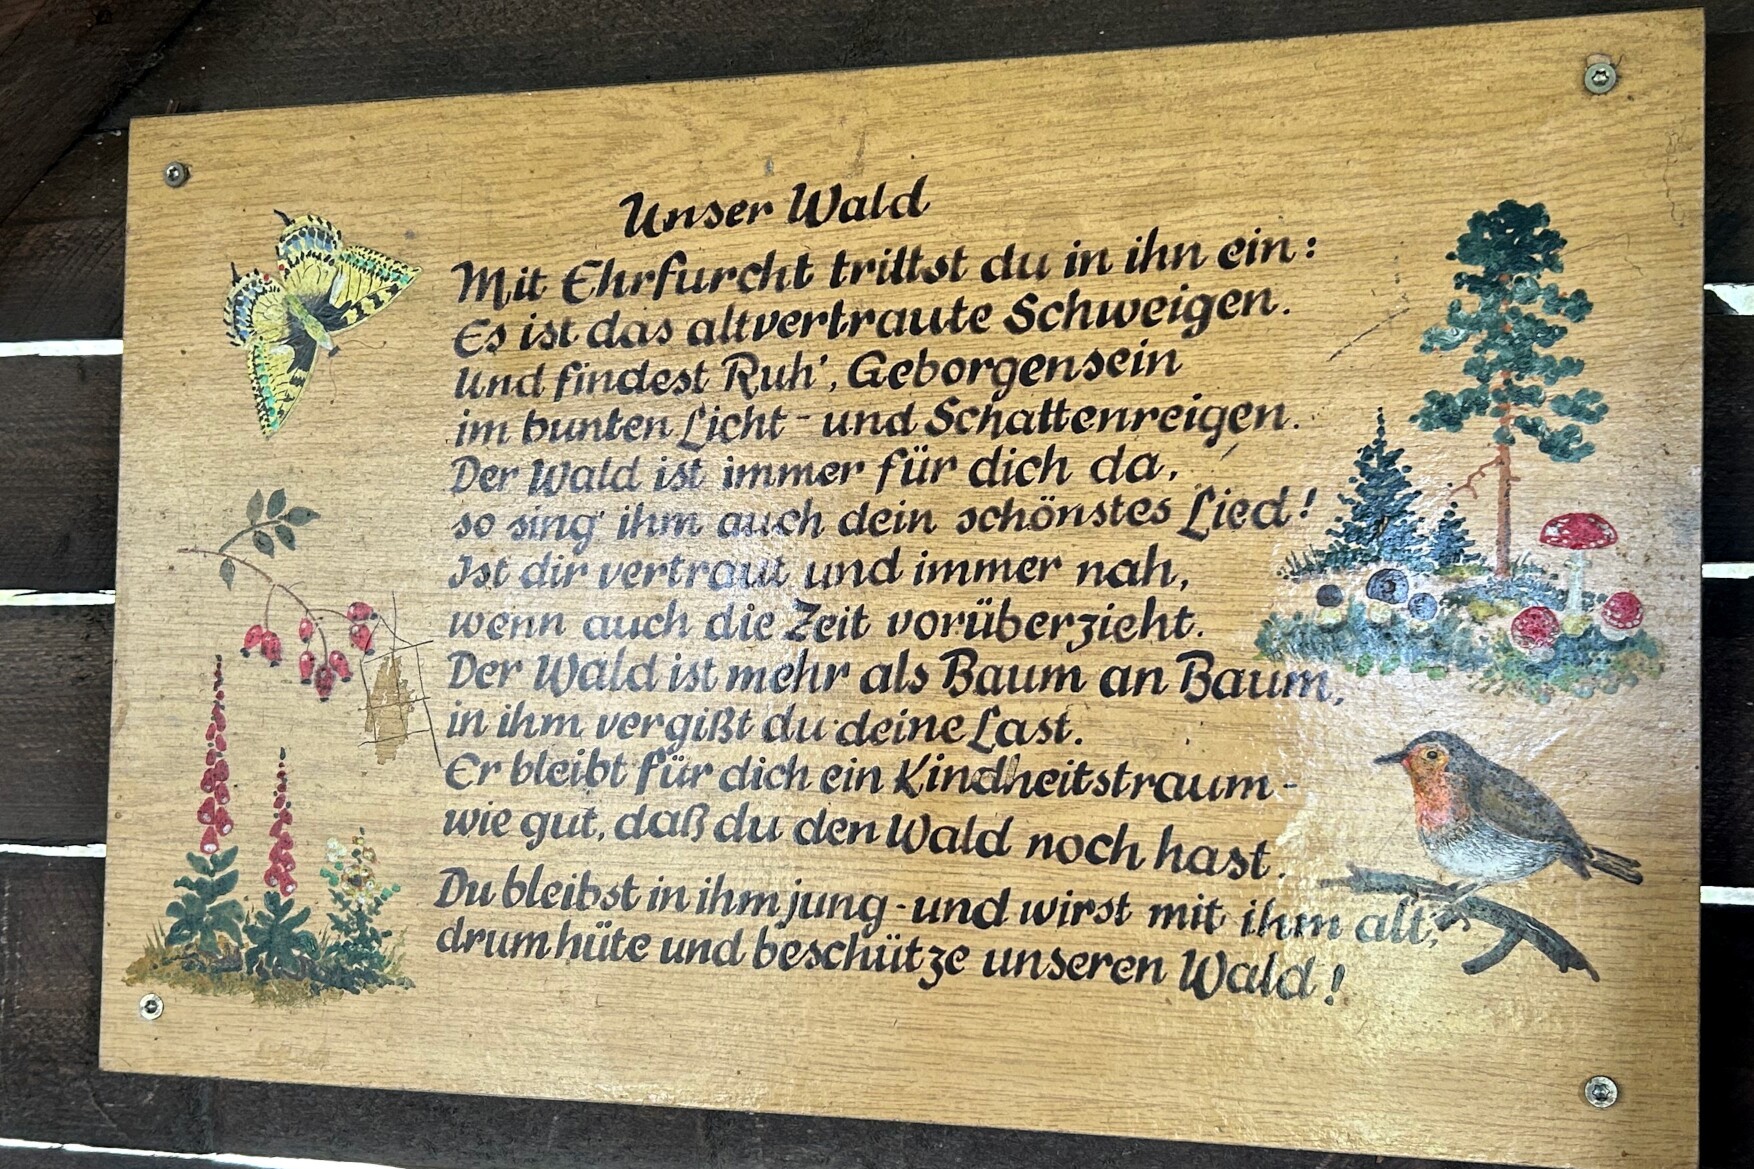 Unser Wald
Mit Ehrfurcht trittst du in ihn ein:
Es ist das altvertraute Schweigen.
Und findest Ruh', Geborgensein
im bunten Licht- und Schattenreigen.
Der Wald ist immer für dich da,
so sing' ihm auch dein schönstes Lied!
Ist dir vertraut und immer nah,
wenn auch die Zeit vorüberzieht.
Der Wald ist mehr als Baum an Baum,
in ihm vergißt du deine Last.
Er bleibt für dich ein Kindheitstraum-
wie gut, daß du den Wald noch hast.
Du bleibst in ihm jung-und wirst mit ihm alt,
drum hüte und beschütze unseren Wald!